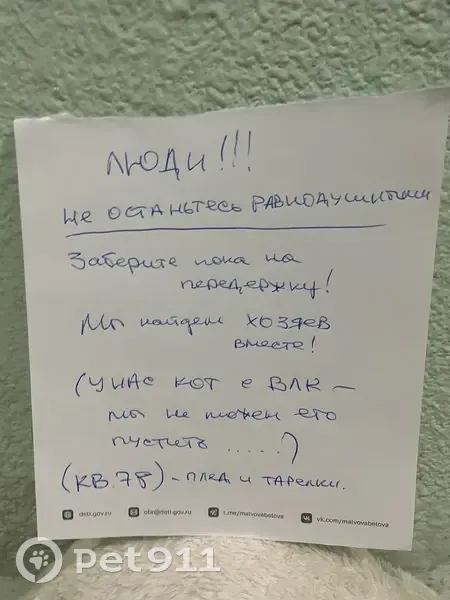 ЛЮДИ!!!
не останьтесь равнодушными
Заберите пока на
передержку!
Мы найдем хозяев
вместе!
(У нас кот с ВЛК –
мы не можем его
пустить .....)
(кв.78) – плед и тарелки.
deti.gov.ru obr@deti.gov.ru t.me/malvovabelova vk.com/malvovabelova
pet911